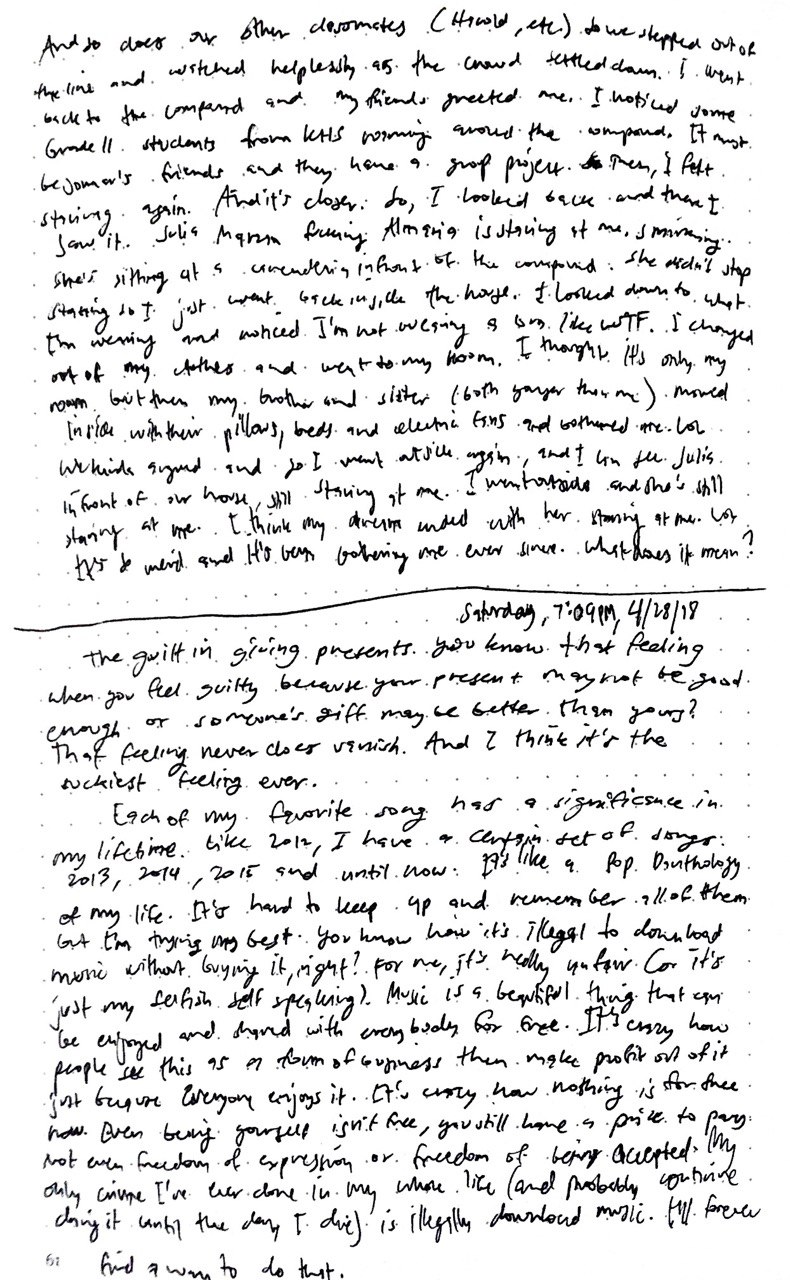 And so does our other classmates (Harold, etc.) so we stepped out of
the line and watched helplessly as the crowd settled down. I went
back to the compound and my friends greeted me. I noticed some
Grade 11 students from KHS roaming around the compound. It must
be Jomar's friends and they have a group project. Then, I felt
staring again. And it's closer. So, I looked back and there I
saw it. Julia fucking is staring at me, smirking.
She's sitting at a in front of the compound. She didn't stop
staring so I just went back inside the house. I looked down to what
I'm wearing and noticed I'm not wearing a bra like WTF. I changed
out of my clothes and went to my room. I thought it's only my
room but then my brother and sister (both younger than me) moved
inside with their pillows, beds and electric fans and bothered me. Lol
We kinda argued and so I went outside again, and I can see Julia
in front of our house, still staring at me. I went outside and she's still
staring at me. I think my dream ended with her staring at me. Lol
It's so weird and it's been bothering me ever since. What does it mean?
Saturday, 7:09PM, 4/28/18
The guilt in giving presents. You know that feeling
when you feel guilty because your present may not be good
enough or someone's gift may be better than yours?
That feeling never does vanish. And I think it's the
suckiest feeling ever.
Each of my favorite song has a significance in
my lifetime. Like 2012, I have a certain set of songs.
2013, 2014, 2015 and until now. It's like a Pop Danthology
of my life. It's hard to keep up and remember all of them
but I'm trying my best. You know how it's illegal to download
music without buying it, right? For me, it's really unfair (or it's
just my selfish self speaking). Music is a beautiful thing that can
be enjoyed and shared with everybody for free. It's crazy how
people see this as a form of business then make profit out of it
just because everyone enjoys it. It's crazy how nothing is for free
now. Even being yourself isn't free, you still have a price to pay.
Not even freedom of expression or freedom of being accepted. My
only crime I've ever done in my whole life (and probably continue
doing it until the day I die) is illegally download music. I'll forever
find a way to do that.